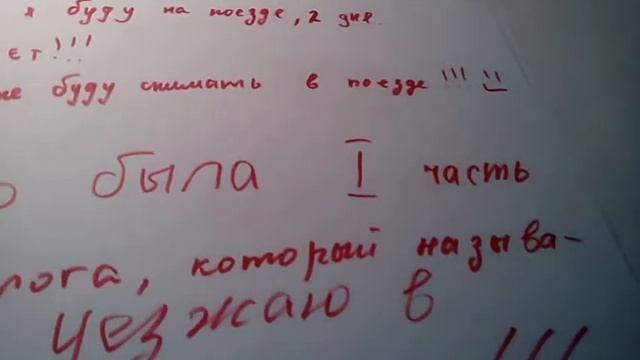 я буду на поезде, 2 дня.
ет!!!
же буду снимать в поезде!!! :)
о была I часть
лога, который называ-
уезжаю в
!!!